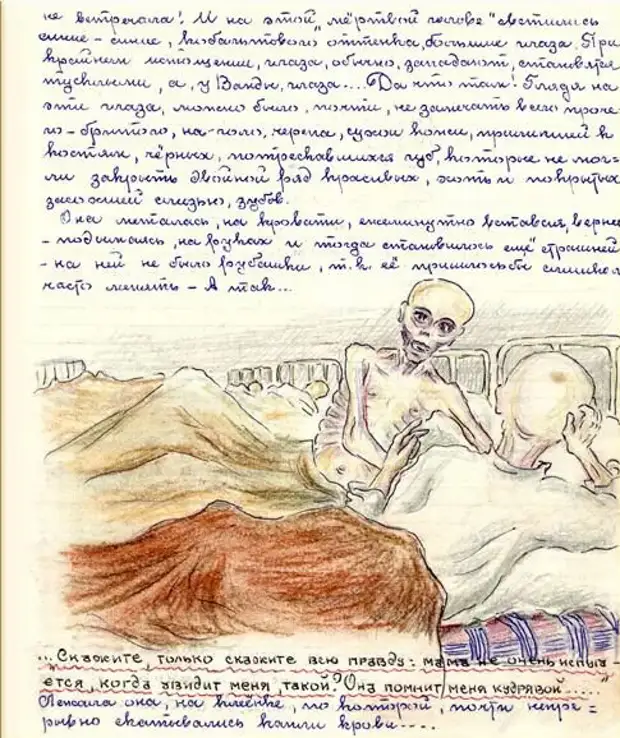 не встречала! И на этой „мёртвой голове" светились
синие-синие, кобальтового оттенка, большие глаза. При
крайнем истощении, глаза, обычно, западают, становятся
тусклыми, а, у Ванды, глаза.... Да что там! Глядя на
эти глаза, можно было, почти, не замечать всего проче
го - бритого, на-голо, черепа, сухой кожи, прилипшей к
костям, чёрных, потрескавшихся губ, которые не мог=
ли закрыть двойной ряд красивых, хоть и покрытых
засохшей слизью, зубов.
Она металась, на кровати, ежеминутно вставая, верне
- подымаясь, на руках и тогда становилось ещё страшней
- на ней не было рубашки, т.к. её пришлось бы слишком
часто менять - А так...
... Скажите, только скажите всю правду: мама не очень испуга-
ется, когда увидит меня, такой? Она помнит меня кудрявой....."
Лежала она, на клеёнке, по которой, почти непре=
рывно скатывались капли крови....